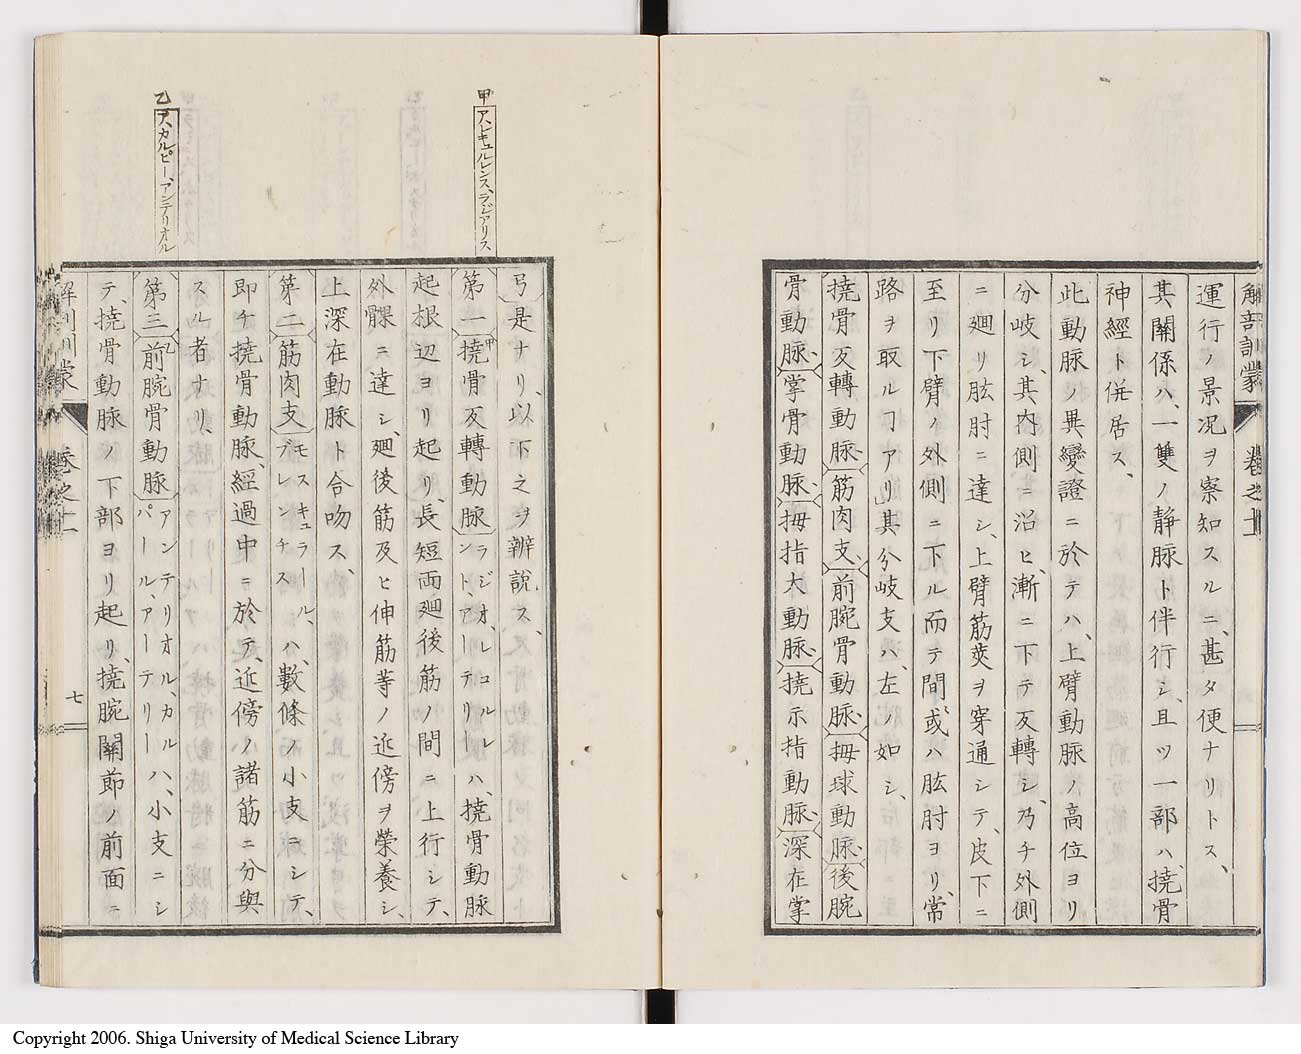 解剖訓蒙 卷之十二
運行ノ景況ヲ察知スルニ、甚タ便ナリトス、
其關係ハ、一雙ノ靜脉ト伴行シ、且ツ一部ハ、撓骨
神經ト併居ス、
此動脉ノ異變證ニ於テハ、上臂動脉ノ高位ヨリ
分岐シ、其内側ニ沿ヒ、漸ニ下テ反轉シ、乃チ外側
ニ廻リ肱肘ニ達シ、上臂筋莢ヲ穿通シテ、皮下ニ
至リ下臂ノ外側ニ下ル而テ間〻或ハ肱肘ヨリ、常
路ヲ取ルヿアリ」其分岐支ハ、左ノ如シ、
撓骨反轉動脉、筋肉支、前腕骨動脉、拇球動脉、後腕
骨動脉、掌骨動脉、拇指大動脉、撓示指動脉、深在掌
弓是ナリ、以下之ヲ辨說ス、
甲 ア、レキュルレンス、ラジアリス
第一撓骨反轉動脉 ラジオ、レコルレント、アーテリーハ、撓骨動脉
起根辺ヨリ起リ、長短両廻後筋ノ間ニ上行シテ、
外髁ニ達シ、廻後筋及ヒ伸筋等ノ近傍ヲ榮養シ、
上深在動脉ト合吻ス、
第二筋肉支 モスキュラール、ブレンチスハ、數條ノ小支ニシテ、
即チ撓骨動脉、經過中ニ於テ、近傍ノ諸筋ニ分與
スル者ナリ、
乙 ア、カルピー、アンテリオル
第三前腕骨動脉 アンテリオル、カルパール、アーテリーハ、小支ニシ
テ、撓骨動脉ノ下部ヨリ起リ、撓腕關節ノ前面ニ
七
Copyright 2006. Shiga University of Medical Science Library